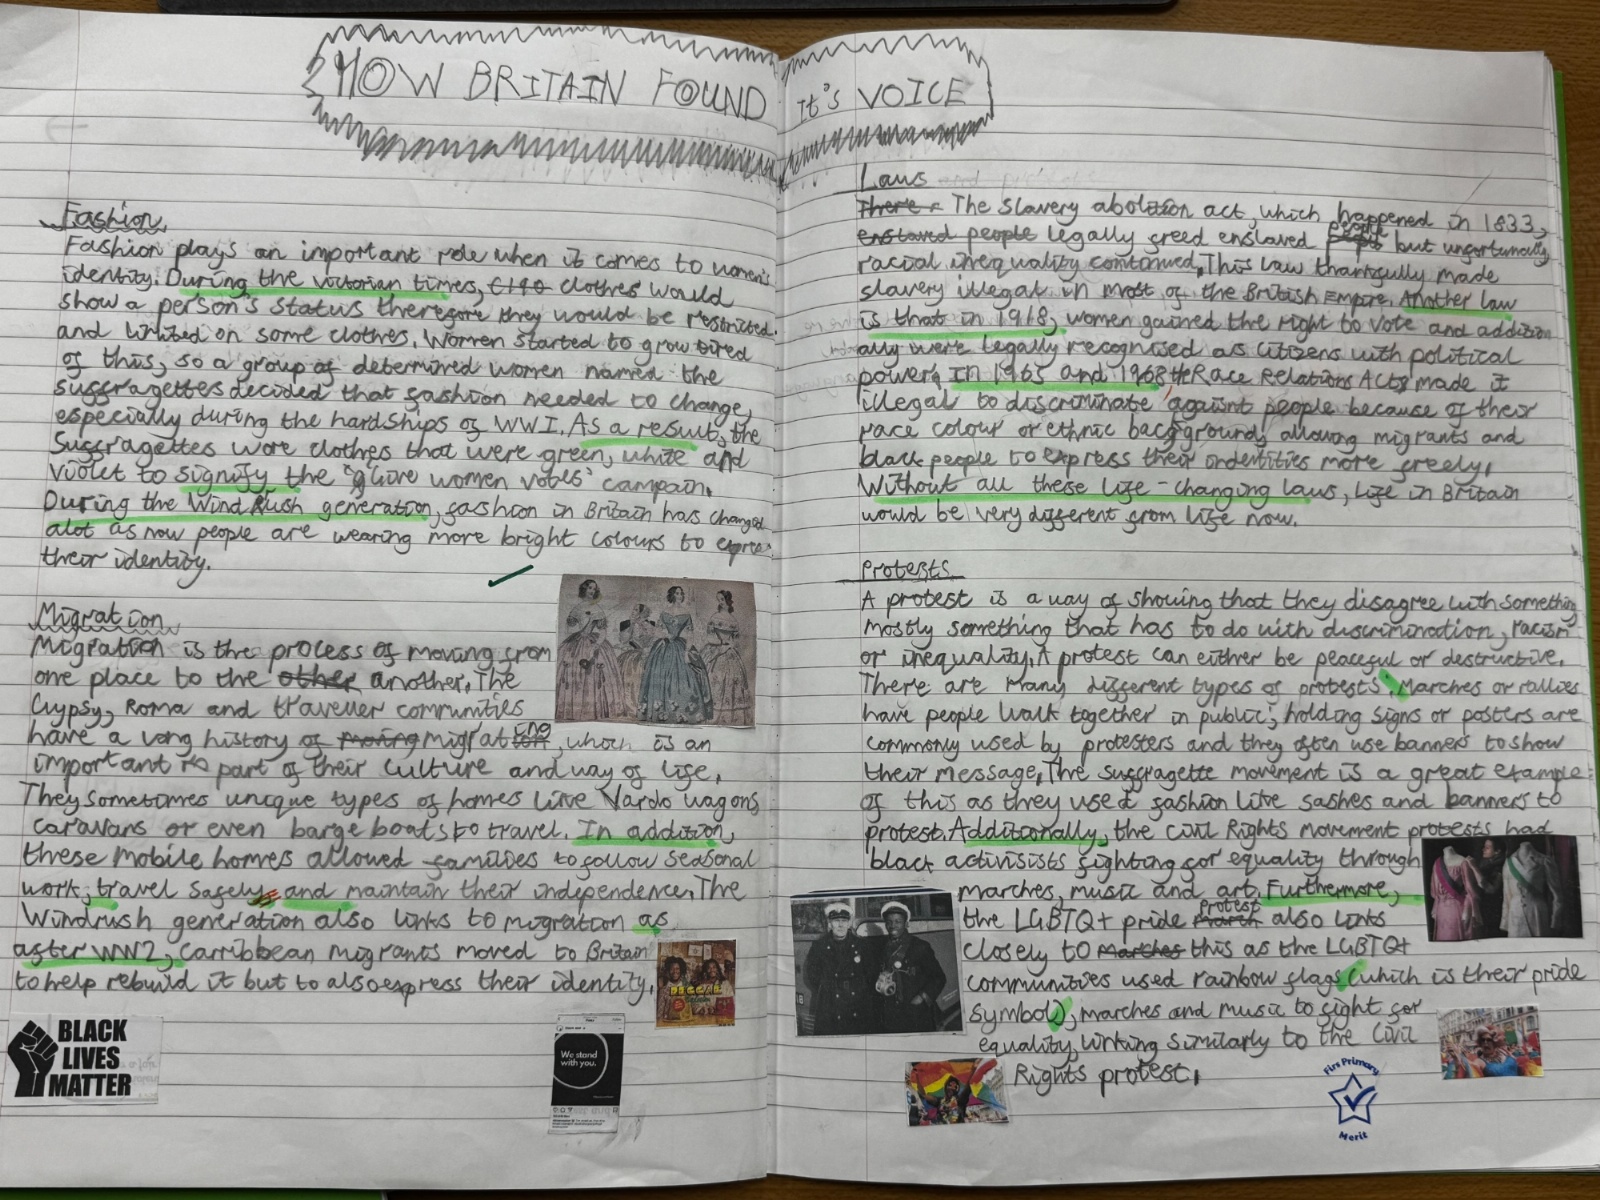 HOW BRITAIN FOUND It's VOICE
Fashion
Fashion plays an important role when it comes to women's
identity. During the victorian times, clothes would
show a person's status therefore they would be restricted.
and limited on some clothes. Women started to grow tired
of this, so a group of determined women named the
suffragettes decided that fashion needed to change,
especially during the hardships of WWI. As a result, the
Suffragettes wore clothes that were green, white and
violet to signify the "give women votes" campain.
During the WindRush generation, fashion in Britain has changed
alot as now people are wearing more bright colours to
their identity.
Migration
Migration is the process of moving from
one place to the other another. The
Gypsy, Roma and traveller communities
have a long history of moving migrating, which is an
important part of their culture and way of life.
They sometimes unique types of homes like Vardo wagons,
caravans or even barge boats to travel. In addition,
these mobile homes allowed families to follow seasonal
work, travel safely and maintain their independence. The
Windrush generation also links to migration as
after WW2, Carribbean migrants moved to Britain
to help rebuild it but to also express their identity.
BLACK
LIVES
MATTER
We stand
with you.
Laws
There The slavery abolition act, which happened in 1833,
enslaved people legally freed enslaved people but unfortunally,
racial inequality continued, This law thankfully made
slavery illegal in most of the British Empire. Another law
is that in 1918, women gained the right to vote and addition
ally were legally recognised as citizens with political
power. In 1965 and 1968 the Race Relations Acts made it
illegal to discriminate against people because of their
race colour or ethnic backgrounds, allowing migrants and
black people to express their indentities more freely.
Without all these life-changing laws, life in Britain
would be very different from life now.
Protests
A protest is a way of showing that they disagree with something
mostly something that has to do with discrimination, racism
or inequality. A protest can either be peaceful or destructive.
There are many different types of protests: Marches or rallies
have people walk together in public; holding signs or posters are
commonly used by protesters and they often use banners to show
their message. The suffragette movement is a great example
of this as they used fashion like sashes and banners to
protest. Additionally, the Civil Rights movement protests had
black activisists fighting for equality through
marches, music and art. Furthermore,
the LGBTQ+ pride march protest also links
closely to Marches this as the LGBTQ+
communities used rainbow flags (which is their pride
symbol), marches and music to fight for
equality, linking similarly to the Civil
Rights protest.
Firs Primary
Merit